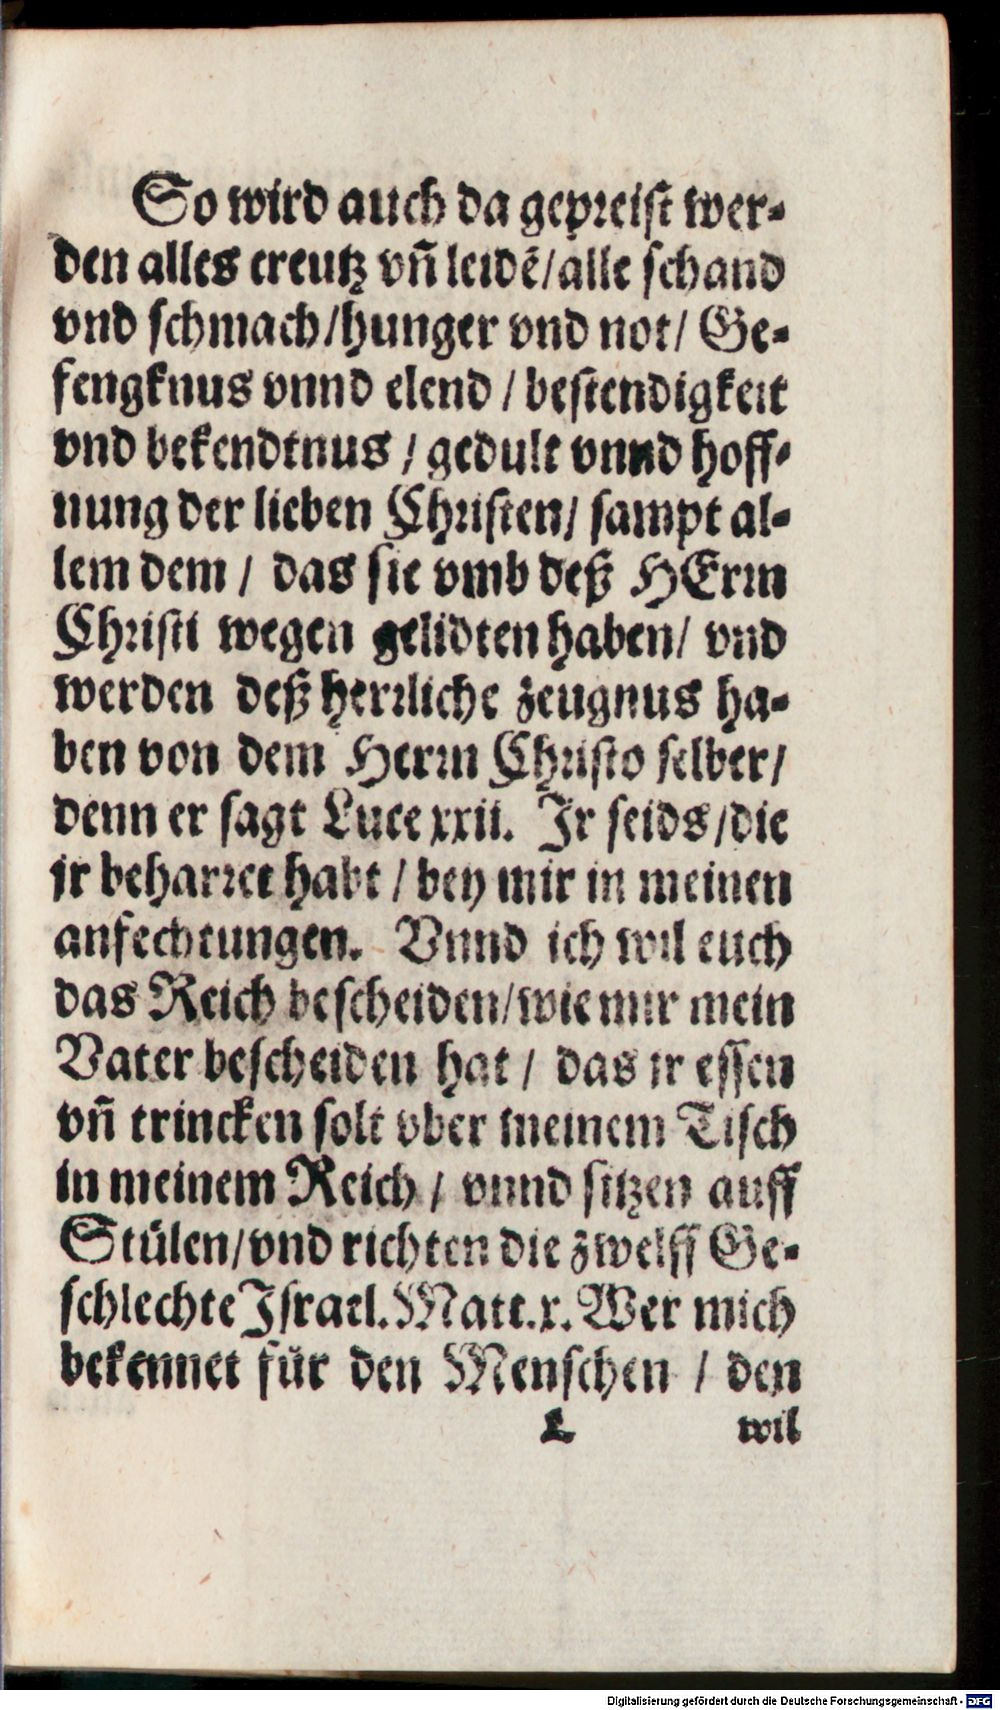 So wird auch da gepreist wer-
den alles creutz vñ leidẽ/alle schand
vnd schmach/hunger vnd not/ Ge-
fengknus vnnd elend / bestendigkeit
vnd bekendtnus / gedult vnnd hoff-
nung der lieben Christen/ sampt al-
lem dem / das sie vmb deß HErrn
Christi wegen gelidten haben/ vnd
werden deß herrliche zeugnus ha-
ben von dem Herrn Christo selber/
denn er sagt Luce xxii. Jr seids/die
jr beharret habt / bey mir in meinen
anfechtungen. Vnnd ich wil euch
das Reich bescheiden/wie mir mein
Vater bescheiden hat / das jr essen
vñ trincken solt vber meinem Tisch
in meinem Reich / vnnd sitzen auff
Stülen/vnd richten die zwelff Ge-
schlechte Jsrael. Matt. x. Wer mich
bekennet für den Menschen / den
L wil
Digitalisierung gefördert durch die Deutsche Forschungsgemeinschaft - DFG